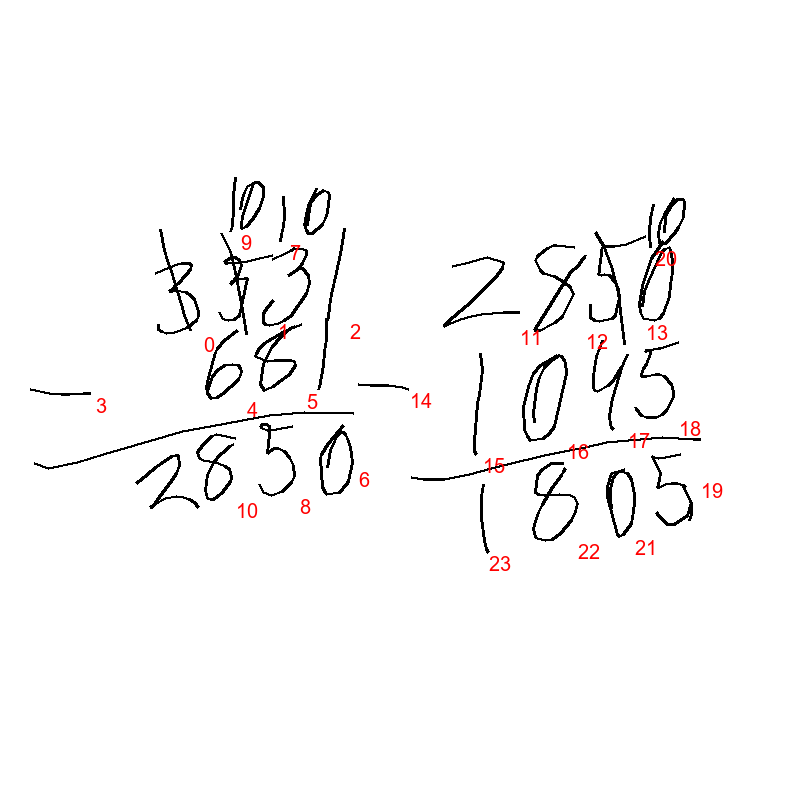 10 10
3531
9 7
0 1 2
- 681
3 4 5
2850
10 8 6
10
2850
20
11 12 13
- 1045
14 15 16 17 18
1805
23 22 21 19